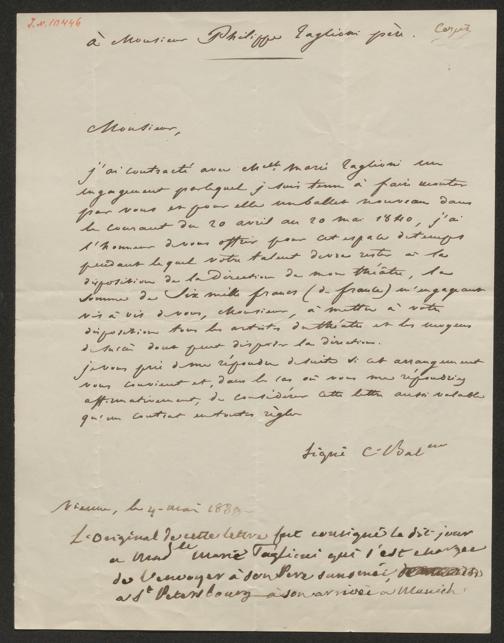 J.N. 10446
à Monsieur Philippe Taglioni père.
Copie
Monsieur,
j'ai contracté avec Mlle Marie Taglioni un
engagement par lequel je suis tenu à faire monter
par vous et pour elle un ballet nouveau dans
le courant du 20 avril au 20 mai 1840, j'ai
l'honneur de vous offrir pour cet espace de temps
pendant lequel votre talent devra rester à la
disposition de la Direction de mon théâtre, la
somme de Six mille francs (de France) m'engageant
vis à vis de vous, Monsieur, à mettre à votre
disposition tous les artistes du théâtre et les moyens
de succès dont peut disposer la direction.
je vous prie de me répondre de suite si cet arrangement
vous convient et, dans le cas où vous me répondriez
affirmativement, de considérer cette lettre aussi valable
qu'un contrat en toutes règles
Signé C. Bal
Vienne, le 4 mai 1839
L'original de cette lettre fut consigné le dit jour
a Madlle Marie Taglioni qui s'est chargée
de l'envoyer à son Pere
a St Petersbourg à son arrivée a Munich.